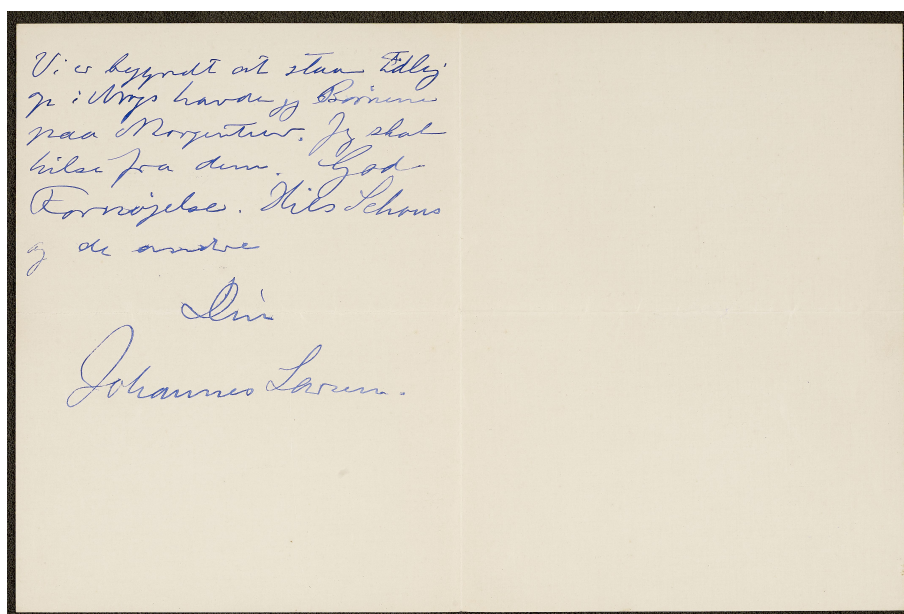 Vi er begyndt at staa tidlig
op i Morges havde jeg Børnene
paa Morgentur. Jeg skal
hilse fra dem. God
Fornøjelse. Hils Schous
og de andre
Din
Johannes Larsen.